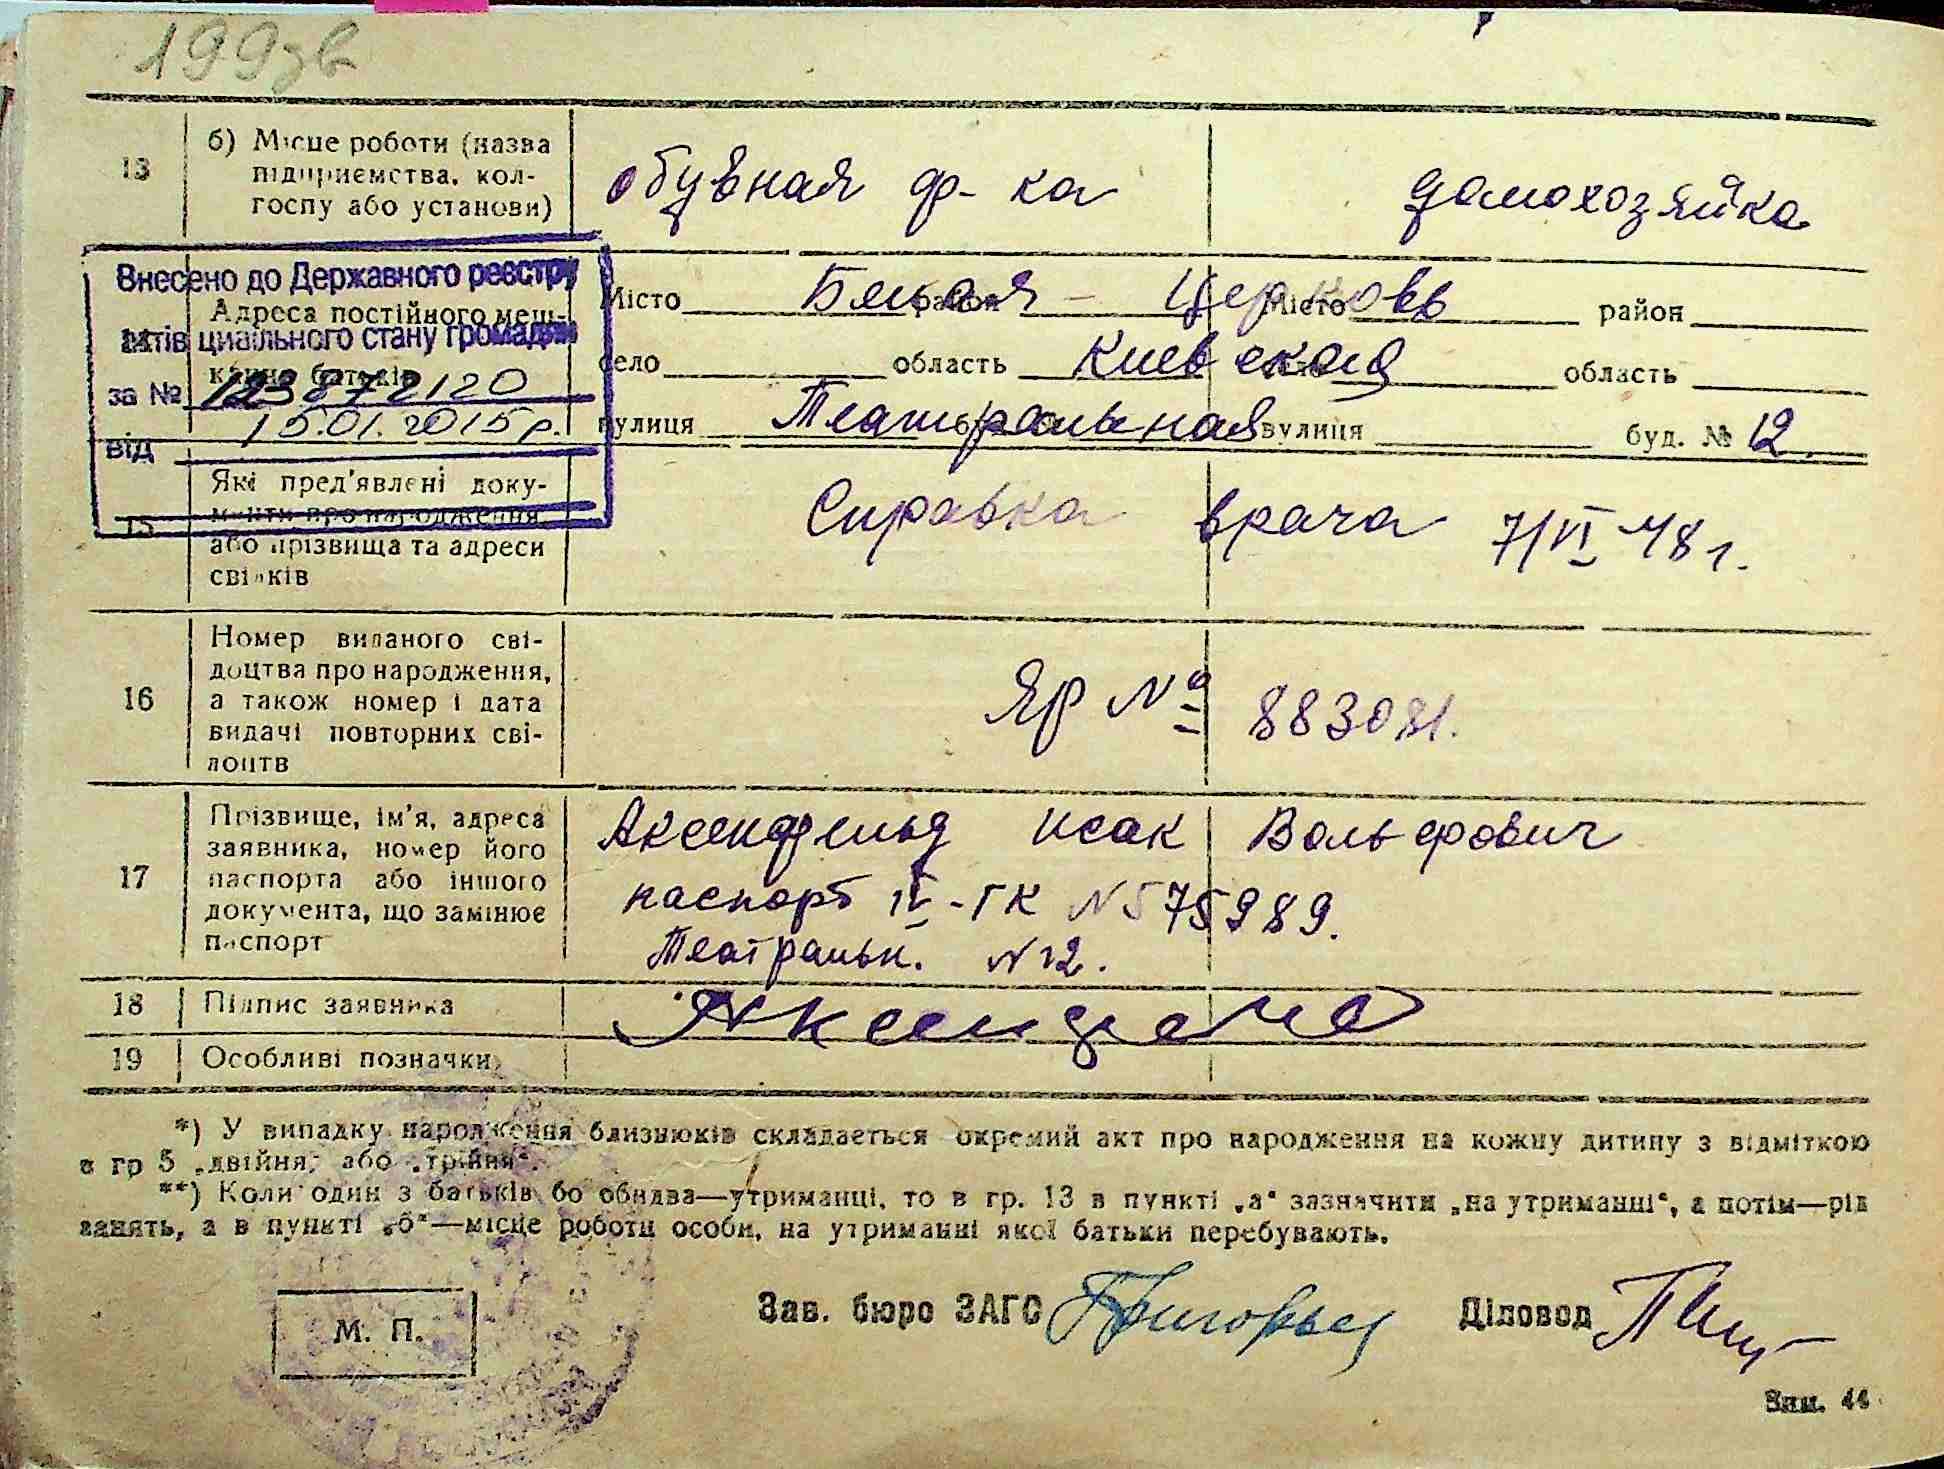 199зв
13
б) Місце роботи (назва
підприємства, кол-
госпу або установи)
обувная ф-ка
домохозяйка
Внесено до Державного реєстру
актів цивільного стану громадян
за № 123872120
від 15.01.2015р.
Адреса постійного меш-
кання батьків
Місто Белая - Церковь район Місто район
село область Киевская область
вулиця Театральная вулиця буд. № 12.
15
Які пред'явлені доку-
менти про народження
або прізвища та адреси
свідків
Справка врача 7/VI 48 г.
16
Номер виданого сві-
доцтва про народження,
а також номер і дата
видачі повторних сві-
доцтв
ЯР № 883081.
17
Прізвище, ім'я, адреса
заявника, номер його
паспорта або іншого
документа, що замінює
паспорт
Аксенфельд Исак Вольфович
паспорт IV-ГК N 575989.
Театральн. N 12.
18 Підпис заявника
19 Особливі позначки
*) У випадку народження близнюків складається окремий акт про народження на кожну дитину з відміткою
в гр 5 „двійня" або „трійня".
**) Коли один з батьків бо обидва—утриманці, то в гр. 13 в пункті „а" зазначити „на утриманні", а потім—рід
занять, а в пункті „б"—місце роботи особи, на утриманні якої батьки перебувають.
М. П.
Зав. бюро ЗАГС
Діловод
Зам. 44